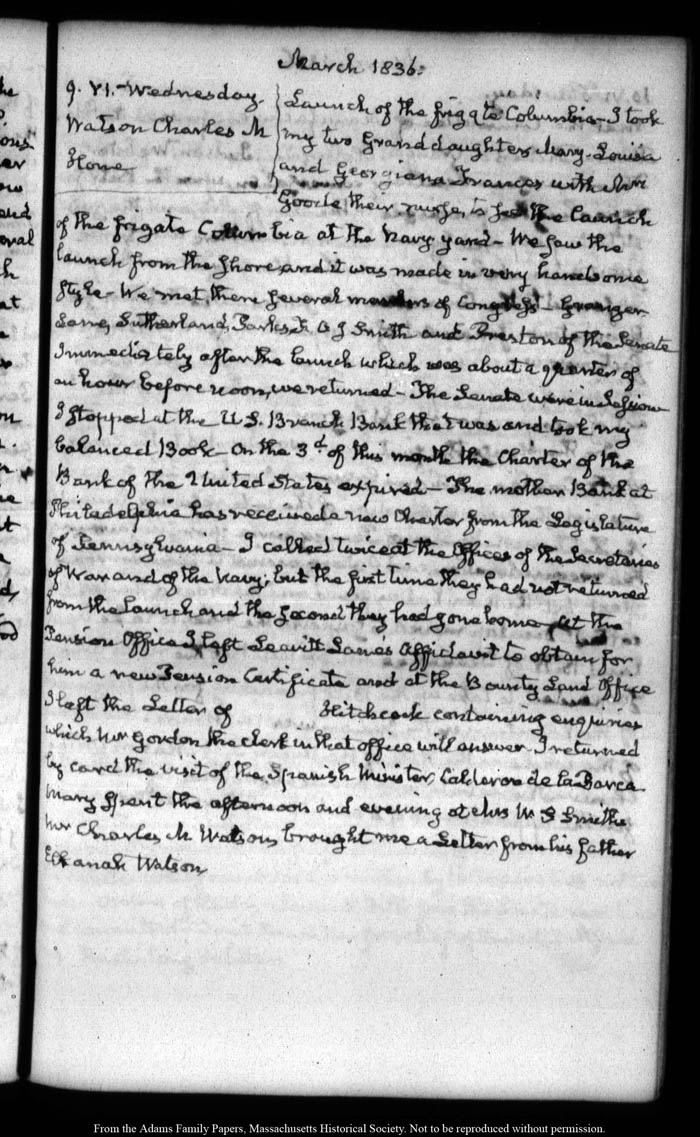 March 1836.
9. VI.- Wednesday.
Watson Charles M
Stone
Launch of the frigate Columbia- I took
my two Granddaughters Mary-Louisa
and Georgiana Frances with Mrs
Goods their nurse, to see the launch
of the frigate Columbia at the Navy yard- We saw the
launch from the shore, and it was made in very handsome
style- We met there several members of Congress- Granger
Lane, Sutherland, Parks, F. O. J Smith and Preston of the Senate
Immediately after the launch which was about a quarter of
an hour before noon, we returned- The Senate were in Session
I stopped at the U.S. Branch Bank that was and took my
balanced Book- On the 3d. of this month the Charter of the
Bank of the United States expired- The mother Bank at
Philadelphia has received a new Charter from the Legislature
of Pennsylvania- I called twice at the Offices of the Secretaries
of War and of the Navy; but the first time they had not returned
from the launch and the second they had gone home- At the
Pension Office I left Leavitt Lane's Affidavit to obtain for
him a new Pension Certificate and at the Bounty Land Office
I left the Letter of Hitchcock containing enquiries
which Mr Gordon the clerk in that office will answer. I returned
by card the visit of the Spanish Minister, Calderon de la Barca
Mary spent the afternoon and evening at Mrs W. S Smith's
Mr Charles M. Watson, brought me a Letter from his father
Elkanah Watson
From the Adams Family Papers, Massachusetts Historical Society. Not to be reproduced without permission.